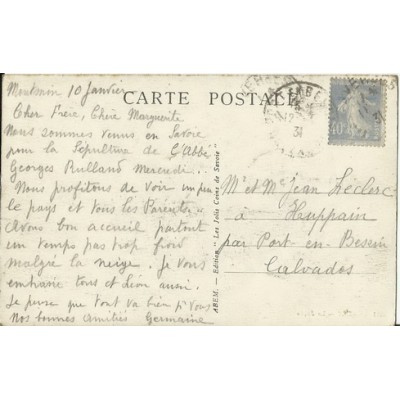 10 Janvier
CARTE POSTALE
Cher Frère, Chère Marguerite
Nous sommes venus en Savoie
pour la Sépulture de l'Abbé
Georges Rulland Mercredi..
Nous profitons de voir un peu
le pays et tous les Parents
Avons bon accueil partout
un temps pas trop froid
malgré la neige. Je vous
embrasse tous et Léon aussi.
Je pense que tout va bien pr vous
Nos bonnes amitiés Germaine
ABEM. - Edition "Les Jolis Coins de Savoie"
31
40
Mr et Me Jean Leclerc
à Huppain
par Port en Bessin
Calvados